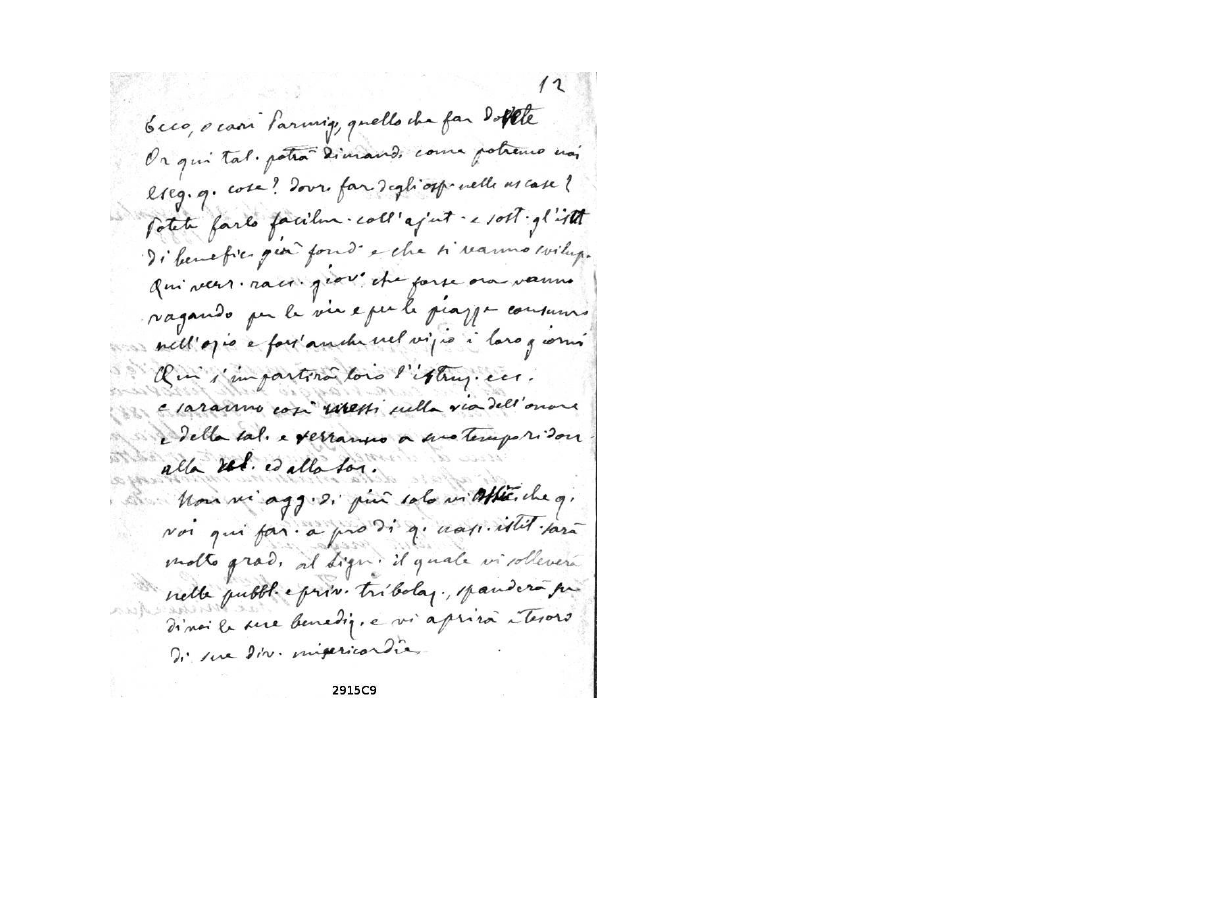 12
Ecco, o cari Parmig, quello che far dovete
Or qui tal. potrà dimand. come potremo noi
eseg. q. cose? dovr. far degli osp. nelle ns case?
Potete farlo facilm. coll'ajut. e sost. gl'istit
di benefic. già fond. e che si vanno svilup.
Qui verr. racc. giov. che forse ora vanno
vagando per le vie e per le piazze consumo
nell'ozio e fors'anche nel vizio i loro giorni
Qui s'impartirà loro l'istruz. ecc.
e saranno così messi sulla via dell'onore
e della sal. e verranno a suo tempo ridon
alla rel. ed alla soc.
Non vi agg. di più solo vi che q.
voi qui far. a pro di q. nasc. istit. sarà
molto grad. al Sign. il quale vi solleverà
nelle pubbl. e priv. tribolaz., spanderà su
di voi le sue benediz. e vi aprirà i tesori
di sue div. misericordie.
2915C9